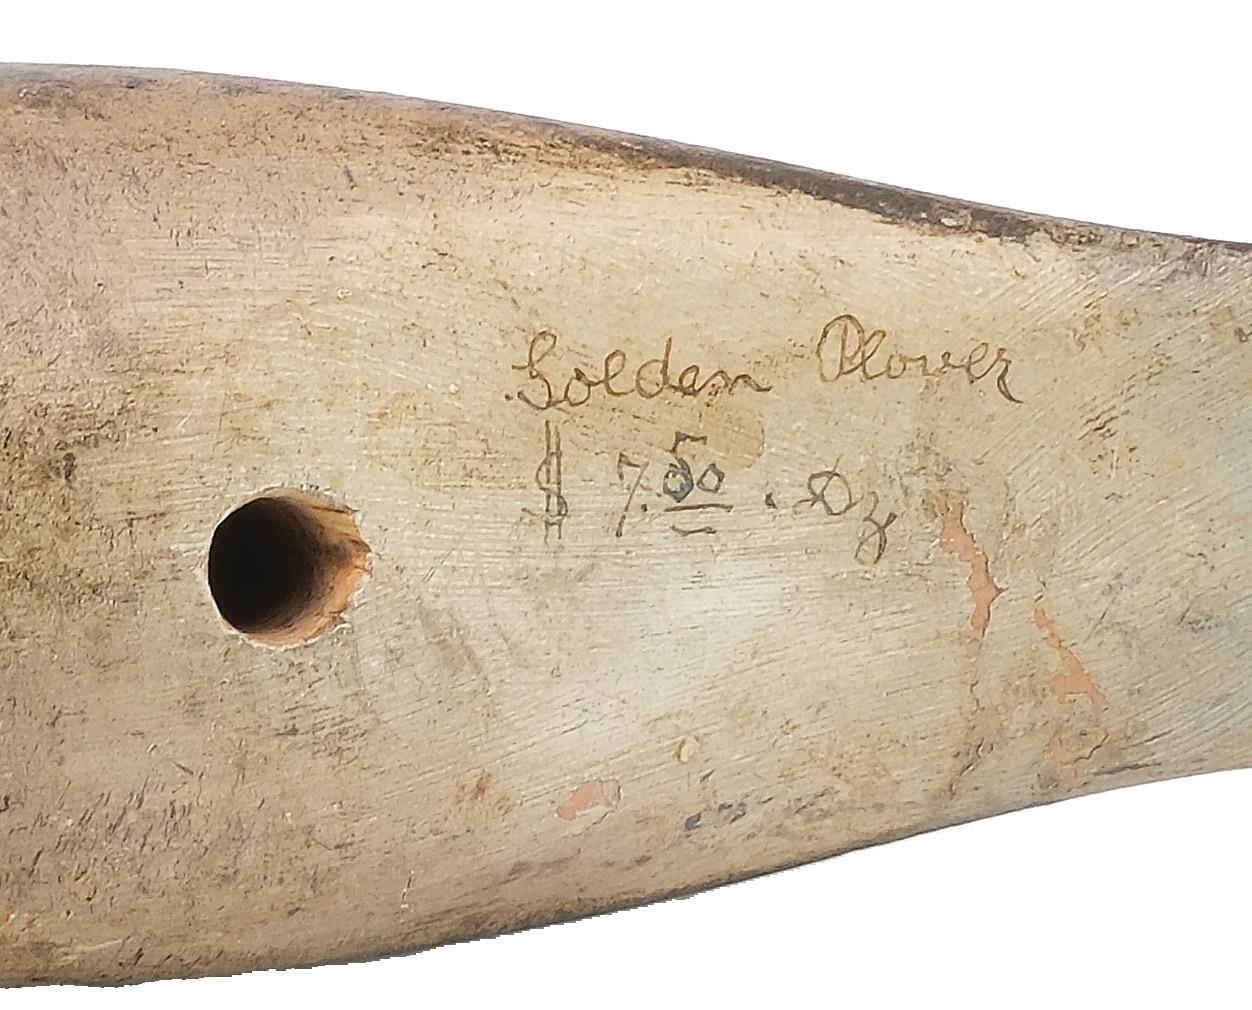 Golden Plover
$ 7.50 . Dz